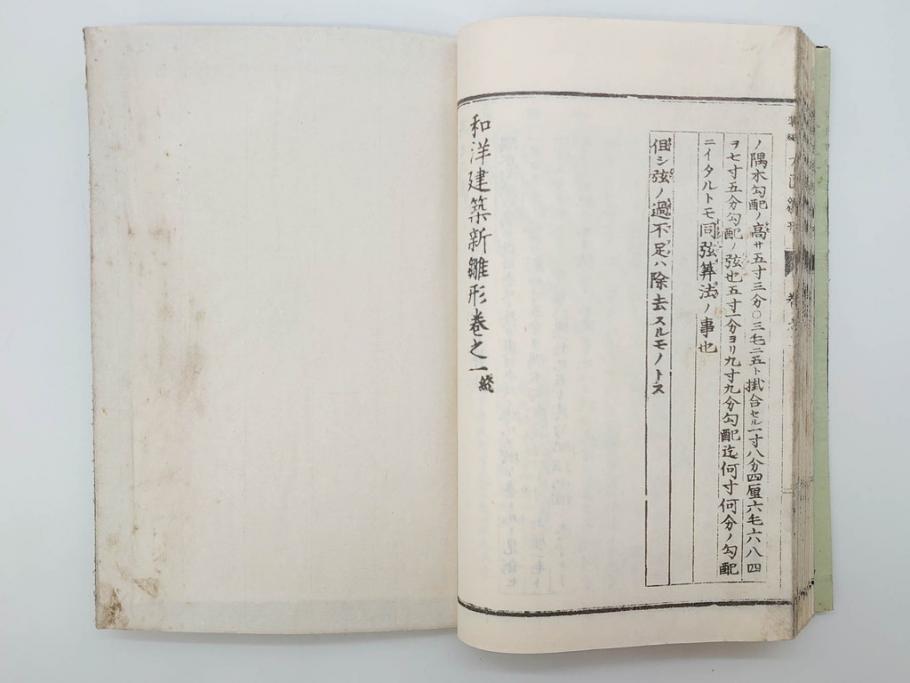 ノ隅木勾配ノ高サ五寸三分〇三毛二五ト掛合セル一寸八分四厘六毛六八四
ヲ七寸五分勾配ノ弦也五寸一分ヨリ九寸九分勾配迄何寸何分ノ勾配
ニイタルトモ同弦算法ノ事也
但シ弦ノ過不足ハ除去スルモノトス
和洋建築新雛形巻之一終